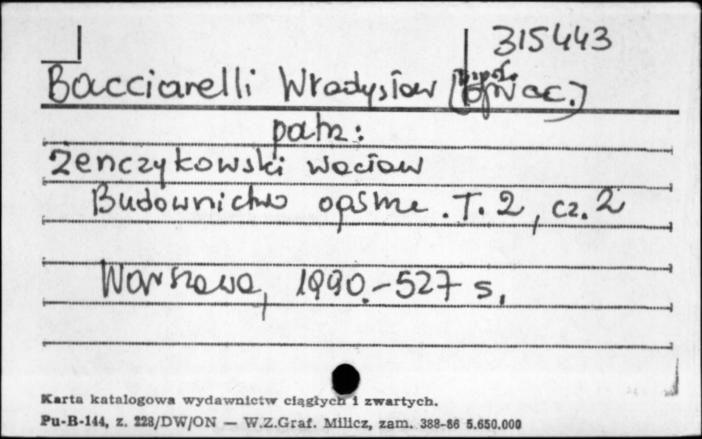 315443
Bacciarelli Władysław
patrz:
Żenczykowski Wacław
Budownictwo ogólne. T. 2, cz. 2
Warszawa, 1990.-527 s.
Karta katalogowa wydawnictw ciągłych i zwartych.
Pu-B-144, z. 228/DW/ON — W.Z.Graf. Milicz, zam. 388-86 5.650.000